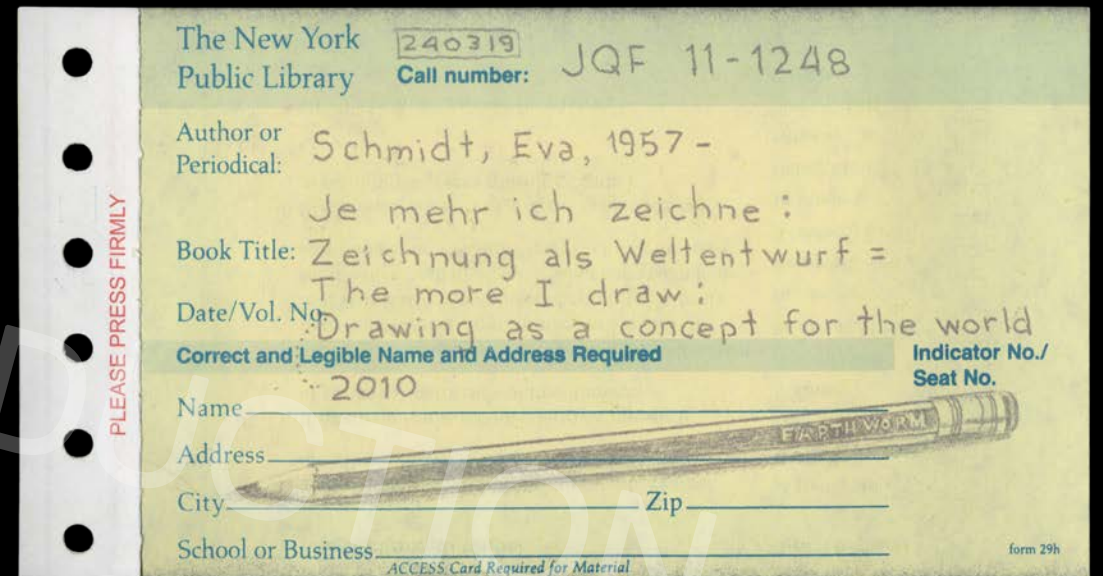 The New York
Public Library
240319
Call number:
JQF 11-1248
Author or
Periodical:
Schmidt, Eva, 1957-
Je mehr ich zeichne :
Book Title: Zeichnung als Weltentwurf =
The more I draw :
Date/Vol. No.
Drawing as a concept for the world
Correct and Legible Name and Address Required
Indicator No./
Seat No.
2010
Name
EARTHWORM
Address
City
Zip
School or Business
ACCESS Card Required for Material
form 29h
PLEASE PRESS FIRMLY
DUCTION